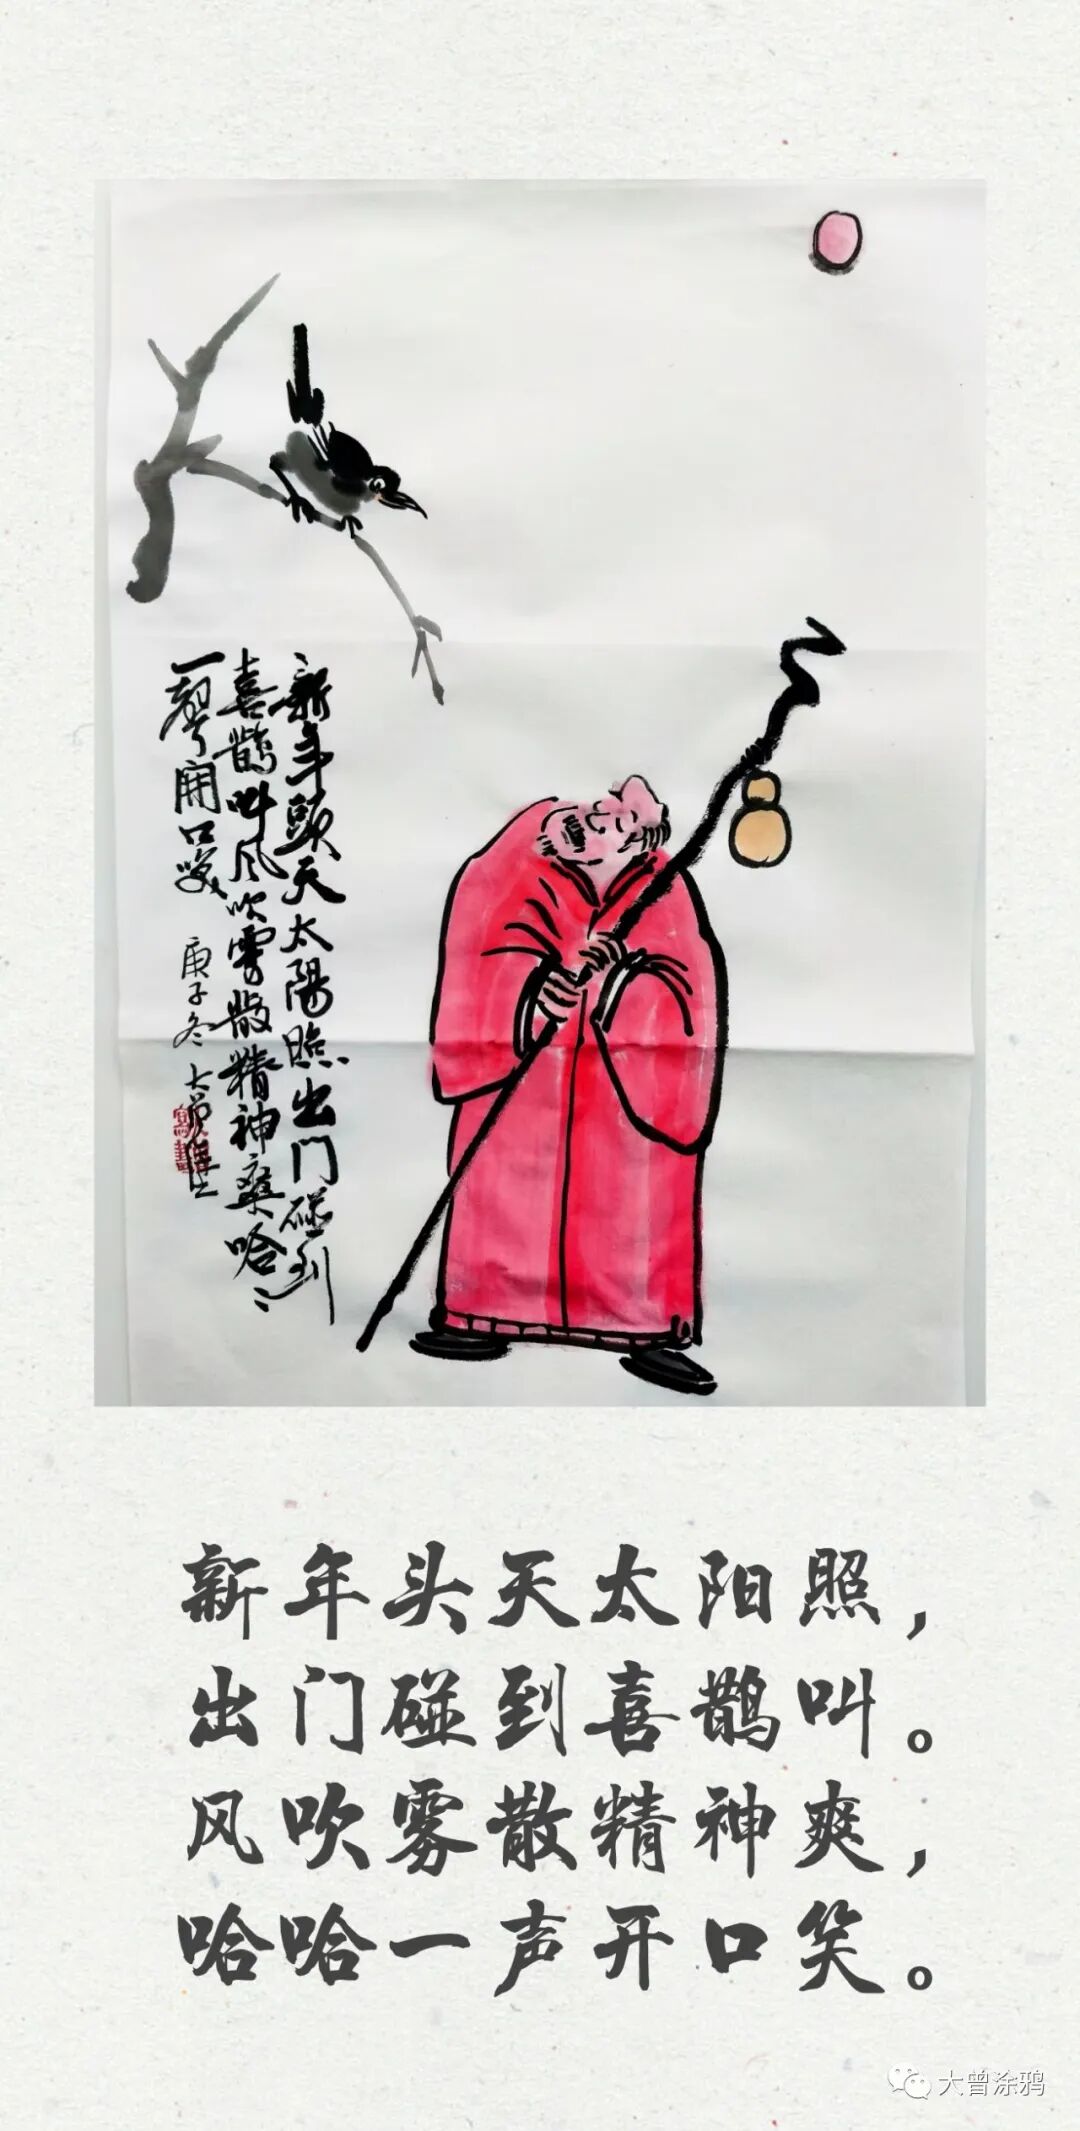 新年頭天太陽照出门碰到
喜鵲叫风吹雾散精神爽哈〻
一声開口笑
庚子冬 大曾
新年头天太阳照，
出门碰到喜鹊叫。
风吹雾散精神爽，
哈哈一声开口笑。
大曾涂鸦